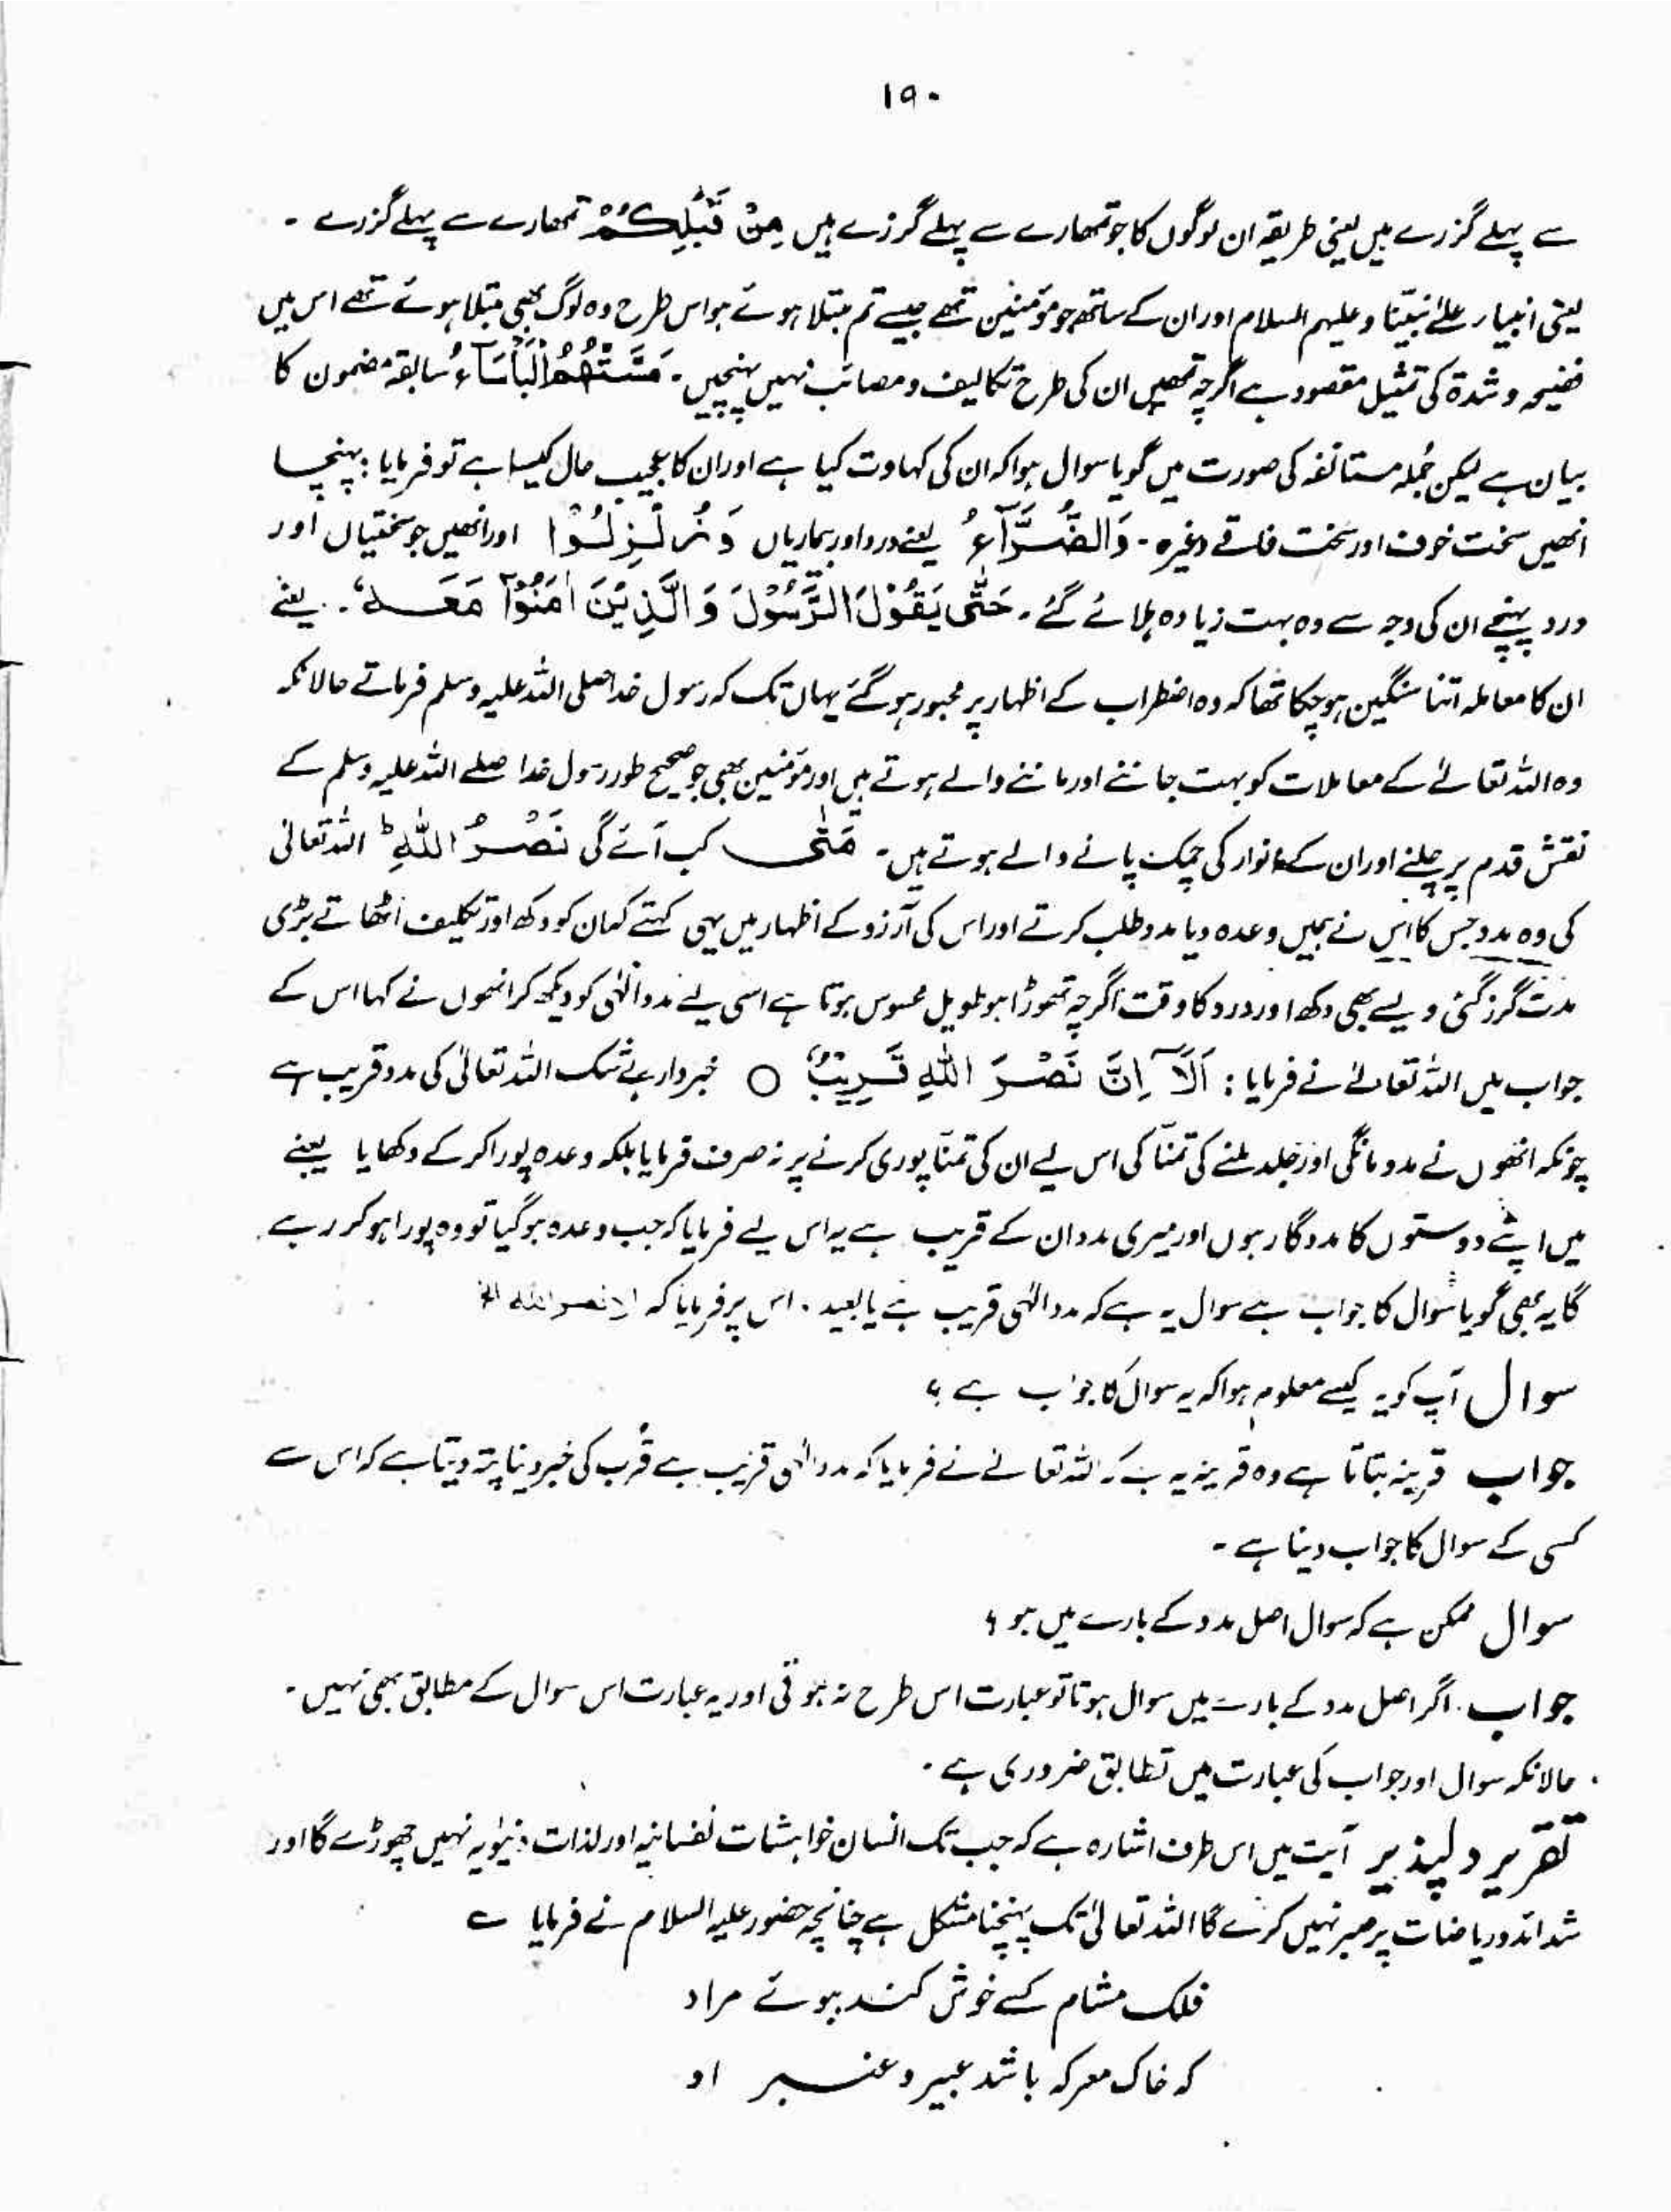 ۱۹۰
سے پہلے گزرے ہیں یعنی طریقہ ان لوگوں کا جو تمھارے سے پہلے گرزے ہیں مِنْ قَبْلِكُمْ تمھارے سے پہلے گزرے ۔
یعنی انبیار علیٰ نبیّنا و علیہم السلام اور ان کے ساتھ جو مؤمنین تھے جیسے تم مبتلا ہوئے ہو اس طرح وہ لوگ بھی مبتلا ہوئے تھے اس میں
فضیحہ و شدۃ کی تمثیل مقصود ہے اگرچہ تمھیں ان کی طرح تکالیف و مصائب نہیں پہنچیں ۔ مَسَّتْهُمُ الْبَأْسَآءُ سابقہ مضمون کا
بیان ہے لیکن جُملہ مستانفہ کی صورت میں گویا سوال ہوا کہ ان کی کہاوت کیا ہے اور ان کا عجیب حال کیسا ہے تو فرمایا : پہنچا
انھیں سخت خوف اور سخت فاقے وغیرہ ۔ وَالضَّرَّآءُ یعنے درد اور بیماریاں وَ زُلْزِلُوْا اور انھیں جو سختیاں اور
درد پہنچے ان کی وجہ سے وہ بہت زیادہ ہلائے گئے ۔ حَتّٰى يَقُوْلَ الرَّسُوْلُ وَالَّذِيْنَ اٰمَنُوْا مَعَهٗ ۔ یعنے
ان کا معاملہ اتنا سنگین ہو چکا تھا کہ وہ اضطراب کے اظہار پر مجبور ہو گئے یہاں تک کہ رسول خدا صلی اللہ علیہ وسلم فرماتے حالانکہ
وہ اللہ تعالےٰ کے معاملات کو بہت جاننے اور ماننے والے ہوتے ہیں اور مؤمنین بھی جو صحیح طور رسول خدا صلے اللہ علیہ وسلم کے
نقش قدم پر چلنے اور ان کے انوار کی چمک پانے والے ہوتے ہیں ۔ مَتٰى کب آئے گی نَصْرُ اللّٰهِ ؕ اللہ تعالیٰ
کی وہ مدد جس کا اس نے ہمیں وعدہ دیا مدد طلب کرتے اور اس کی آرزو کے اظہار میں یہی کہتے کہ ان کو دکھ اور تکلیف اٹھاتے بڑی
مدت گرز گئی ویسے بھی دکھ اور درد کا وقت اگرچہ تھوڑا ہو طویل محسوس ہوتا ہے اسی لیے مدد الٰہی کو دیکھ کر انھوں نے کہا اس کے
جواب میں اللہ تعالےٰ نے فرمایا : اَلَآ اِنَّ نَصْرَ اللّٰهِ قَرِيْبٌ ○ خبردار بے شک اللہ تعالیٰ کی مدد قریب ہے
چونکہ انھوں نے مدد مانگی اور جلد ملنے کی تمنّا کی اس لیے ان کی تمنّا پوری کرنے پر نہ صرف فرمایا بلکہ وعدہ پورا کر کے دکھایا یعنے
میں اپنے دوستوں کا مددگار ہوں اور میری مدد ان کے قریب ہے یہ اس لیے فرمایا کہ جب وعدہ ہو گیا تو وہ پورا ہو کر رہے
گا یہ بھی گویا سوال کا جواب ہے سوال یہ ہے کہ مدد الٰہی قریب ہے یا بعید ۔ اس پر فرمایا کہ
سوال آپ کو یہ کیسے معلوم ہوا کہ یہ سوال کا جواب ہے ؟
جواب قرینہ بتاتا ہے وہ قرینہ یہ ہے کہ اللہ تعالےٰ نے فرمایا کہ مدد الٰہی قریب ہے قُرب کی خبر دینا پتہ دیتا ہے کہ اس سے
کسی کے سوال کا جواب دینا ہے ۔
سوال ممکن ہے کہ سوال اصل مدد کے بارے میں ہو ؟
جواب ۔ اگر اصل مدد کے بارے میں سوال ہوتا تو عبارت اس طرح نہ ہوتی اور یہ عبارت اس سوال کے مطابق بھی نہیں ۔
حالانکہ سوال اور جواب کی عبارت میں تطابق ضروری ہے ۔
تقریر دلپذیر آیت میں اس طرف اشارہ ہے کہ جب تک انسان خواہشات نفسانیہ اور لذات دنیویہ نہیں چھوڑے گا اور
شدائد و ریاضات پر صبر نہیں کرے گا اللہ تعالیٰ تک پہنچنا مشکل ہے چنانچہ حضور علیہ السلام نے فرمایا ؎
فلک مشام کسے خوش کند ببوئے مراد
کہ خاک معرکہ باشد عبیر و عنبر او